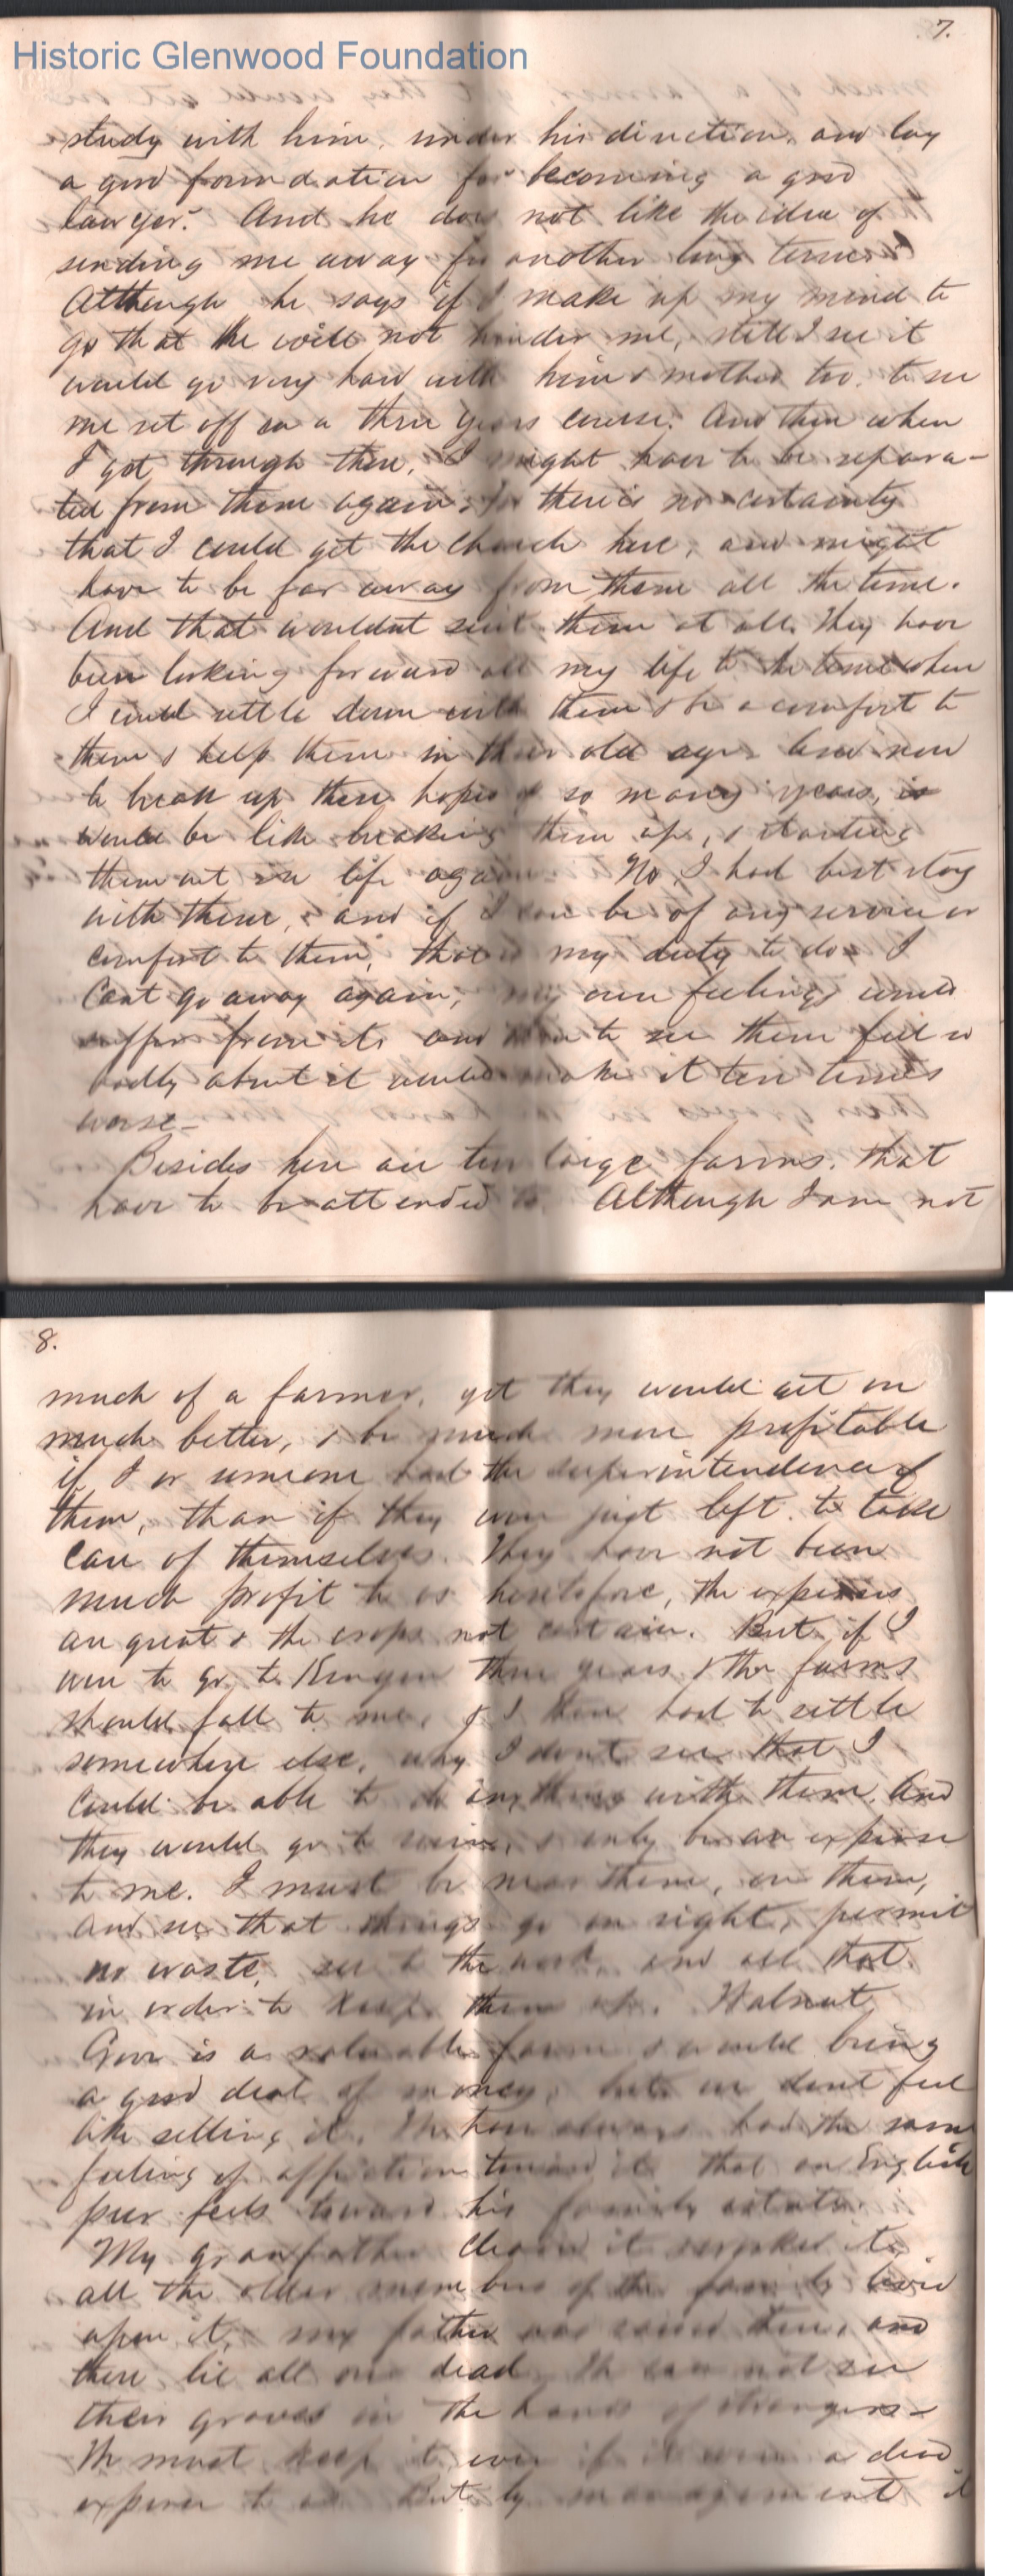 7.
Historic Glenwood Foundation
study with him, under his direction, and lay
a good foundation for becoming a good
lawyer. And he does not like the idea of
sending me away for another long term.
Although he says if I make up my mind to
go that he will not hinder me, still I see it
would go very hard with him & mother too, to see
me set off on a three years course. And then when
I got through there, I might have to be separa-
ted from them again, for there is no certainty
that I could get the church here, and might
have to be far away from them all the time.
And that wouldnt suit them at all. They have
been looking forward all my life to the time when
I could settle down with them & be a comfort to
them & help them in their old age. And now
to break up these hopes of so many years,
would be like breaking them up, & starting
them out in life again. No, I had best stay
with them, and if I can be of any service or
comfort to them, that is my duty to do. I
Cant go away again, my own feelings would
suffer from it, and to see them feel so
badly about it would make it ten times
worse—
Besides here are two large farms that
have to be attended to. Although I am not
8.
much of a farmer, yet they would get on
much better, & be much more profitable
if I or someone had the superintendence of
them, than if they were just left to take
care of themselves. They have not been
much profit to us heretofore, the expenses
are great & the crops not certain. But if I
were to go to three years & the farms
should fall to me, & I then had to settle
somewhere else, why I dont see that I
could be able to do anything with them. And
they would go to ruin, & only be an expense
to me. I must be near them, on them,
and see that things go on right, permit
no waste, see to the work, and all that
in order to keep them up. Walnut
Grove is a valuable farm & would bring
a good deal of money, but we dont feel
like selling it. We have always had the same
feeling of affection toward it that an English
peer feels toward his family estate.
My granfather it,
all the older members of the family lived
upon it, my father was raised there, and
there lie all our dead. We can not see
their graves in the hands of strangers—
We must keep it even if it were a dead
expense to us. But by management it